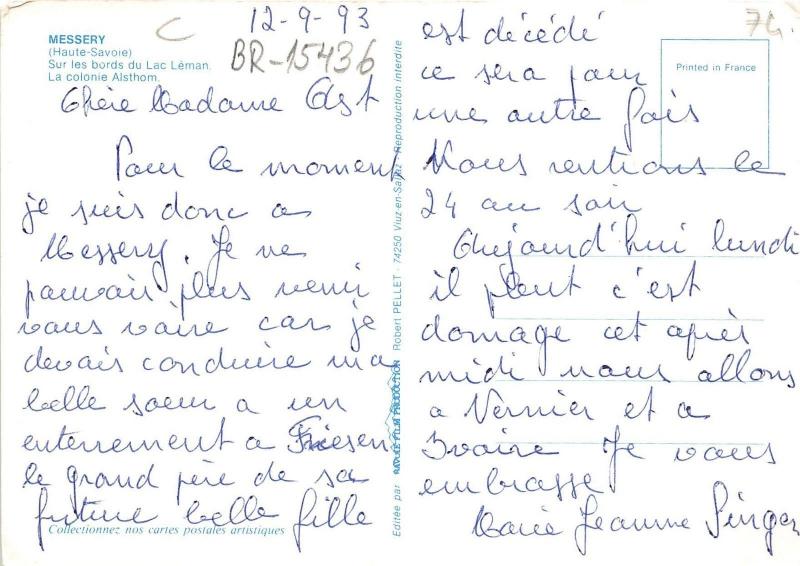 12-9-93
C
BR-15436
74
MESSERY
(Haute-Savoie)
Sur les bords du Lac Léman.
La colonie Alsthom.
Chère Madame Ast
Pour le moment
je suis donc a
Messery. Je ne
pouvais plus venir
vous voire car je
devais conduire ma
belle soeur a un
enterrement a Friesen
le grand père de sa
future belle fille
Collectionnez nos cartes postales artistiques
Editée par
Robert PELLET - 74250 Viuz-en-Sallaz - Reproduction interdite
Printed in France
est décédé
ce sera pour
une autre fois
Nous rentrons le
24 au soir
Aujourd'hui lundi
il pleut c'est
domage cet après
midi nous allons
a Vernier et a
Ivoire Je vous
embrasse
Marie Jeanne Singer